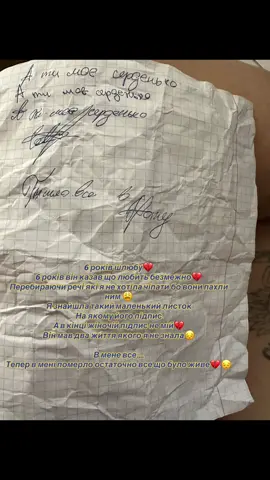 А ти моє серденько
А ти моє серденько
А ти моє серденько
Пішло все в
6 років шлюбу❤️
6 років він казав що любить безмежно❤️
Перебираючи речі які я не хотіла чіпати бо вони пахли
ним 😢
Я знайшла такий маленький листок
На якому його підпис
А в кінці жіночій підпис не мій💔
Він мав два життя якого я не знала😢
В мене все...
Тепер в мені померло остаточно все що було живе💔😢